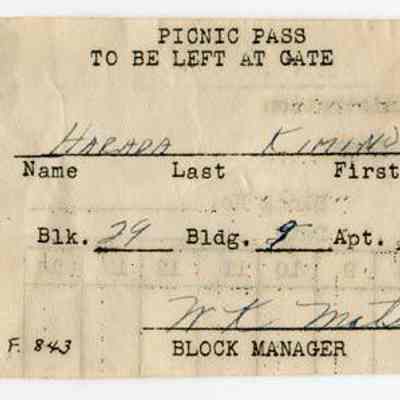 PICNIC PASS
TO BE LEFT AT GATE
HARADA KIMINO
Name Last First
Blk. 29 Bldg. 9 Apt.
W K
F. 843 BLOCK MANAGER